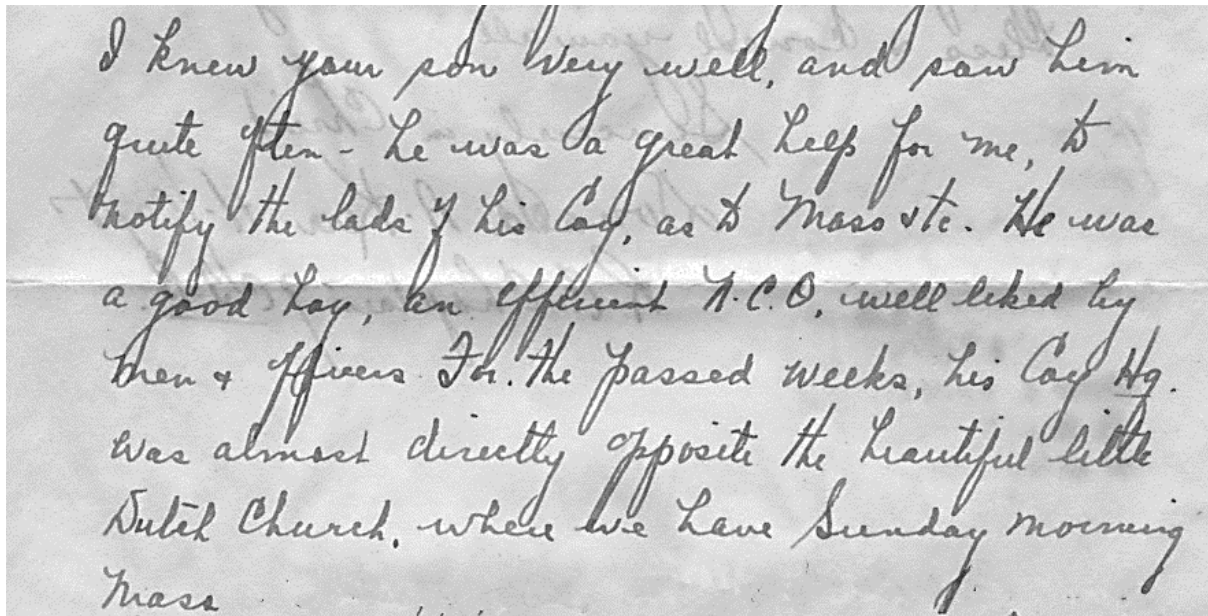 I knew your son very well, and saw him
quite often - he was a great help for me, to
notify the lads of his Coy, as to Mass etc. He was
a good boy, an efficient N.C.O, well liked by
men + officers. For the passed weeks, his Coy Hq.
was almost directly opposite the beautiful little
Dutch Church, where we have Sunday morning
Mass